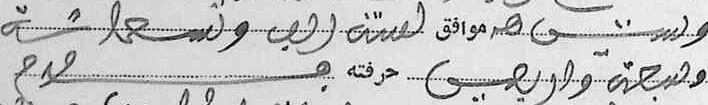 وستين هـ موافق لسنة الف وتسعمائة
وسبعة واربعين حرفته فلاح